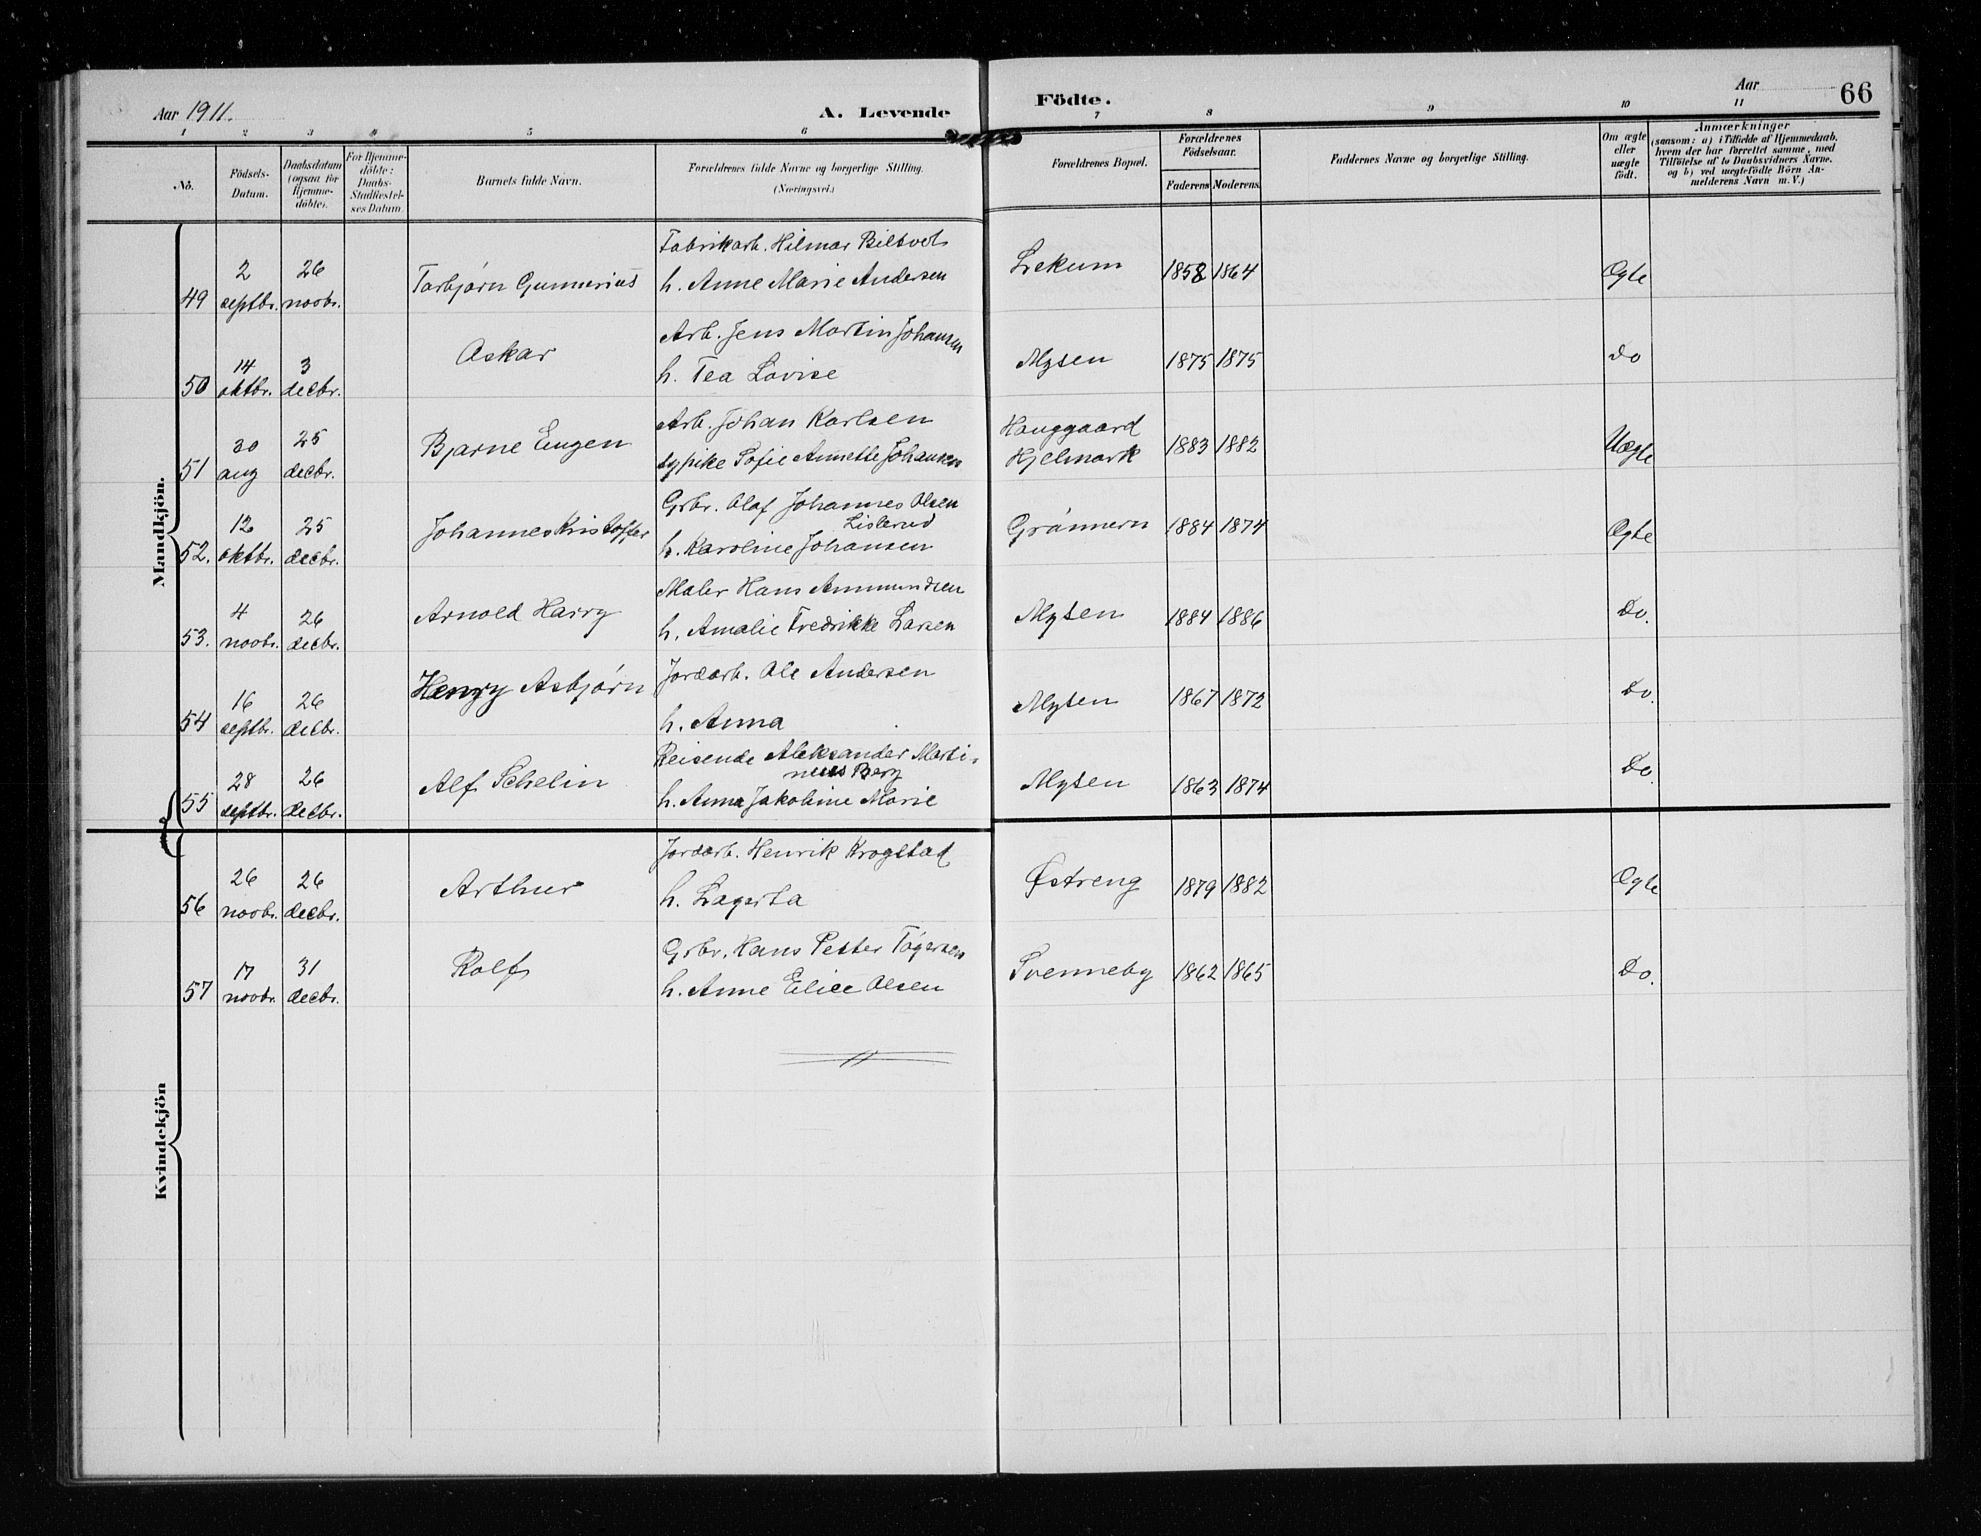 Aar 1911.
A. Levende Födte.
Aar
66
1 2 3 4 5 6 7 8 9 10 11
No.
Födsels-
Datum.
Daabsdatum
(ogsaa for
Hjemme-
döbte).
For Hjemme-
döbte:
Daabs-
Stadfæstel-
ses Datum.
Barnets fulde Navn.
Forældrenes fulde Navne og borgerlige Stilling.
(Næringsvei.)
Forældrenes Bopæl.
Forældrenes
Födselsaar.
Faderens Moderens
Faddernes Navne og borgerlige Stilling.
Om ægte
eller
uægte
födt.
Anmærkninger
(saasom: a) i Tilfælde af Hjemmedaab,
hvem der har forrettet samme, med
Tilföielse af to Daabsvidners Navne,
og b) ved uægtefödte Börn An-
melderens Navn m. V.)
Mandkjön.
Fabrikarb. Hilmar Biltvet
49 2 septbr. 26 novbr. Torbjørn Gunnerius
h. Anne Marie Andersen
Lekum 1858 1864 Ægte
Arb. Jens Martin Johansen
50 14 oktbr. 3 decbr. Oskar
h. Tea Lovise
Mysen 1875 1875 do
Arb. Johan Karlsen
51 30 aug 25 decbr. Bjarne Eugen
typike Sofie Annette Johansen
Hauggaard
Hjelmark 1883 1882 Uægte
Grbr. Olaf Johannes Olsen
Lislerud
52. 12 oktbr. 25 decbr. Johannes Kristoffer
h. Karoline Johansen
Grønnern 1884 1874 Ægte
Maler Hans Ammundsen
53. 4 novbr. 26 decbr. Arnold Harry
h. Amalie Fredrikke Larsen
Mysen 1884 1886 Do.
Jordarb. Ole Andersen
54 16 septbr. 26 decbr. Henry Asbjørn
h. Anna
Mysen 1867 1872 Do.
Reisende Aleksander Marti-
neus Berg
55 28 septbr. 26 decbr. Alf Schelin
h. Anna Jakobine Marie
Mysen 1863 1874 Do.
Jordarb. Henrik Krogstad
56 26 novbr. 26 decbr. Arthur
h. Lagerta
Østreng 1879 1882 Ægte
Grbr. Hans Petter Tøgersen
57 17 novbr. 31 decbr. Rolf
h. Anne Elise Olsen
Svenneby 1862 1865 Do.
Kvindekjön